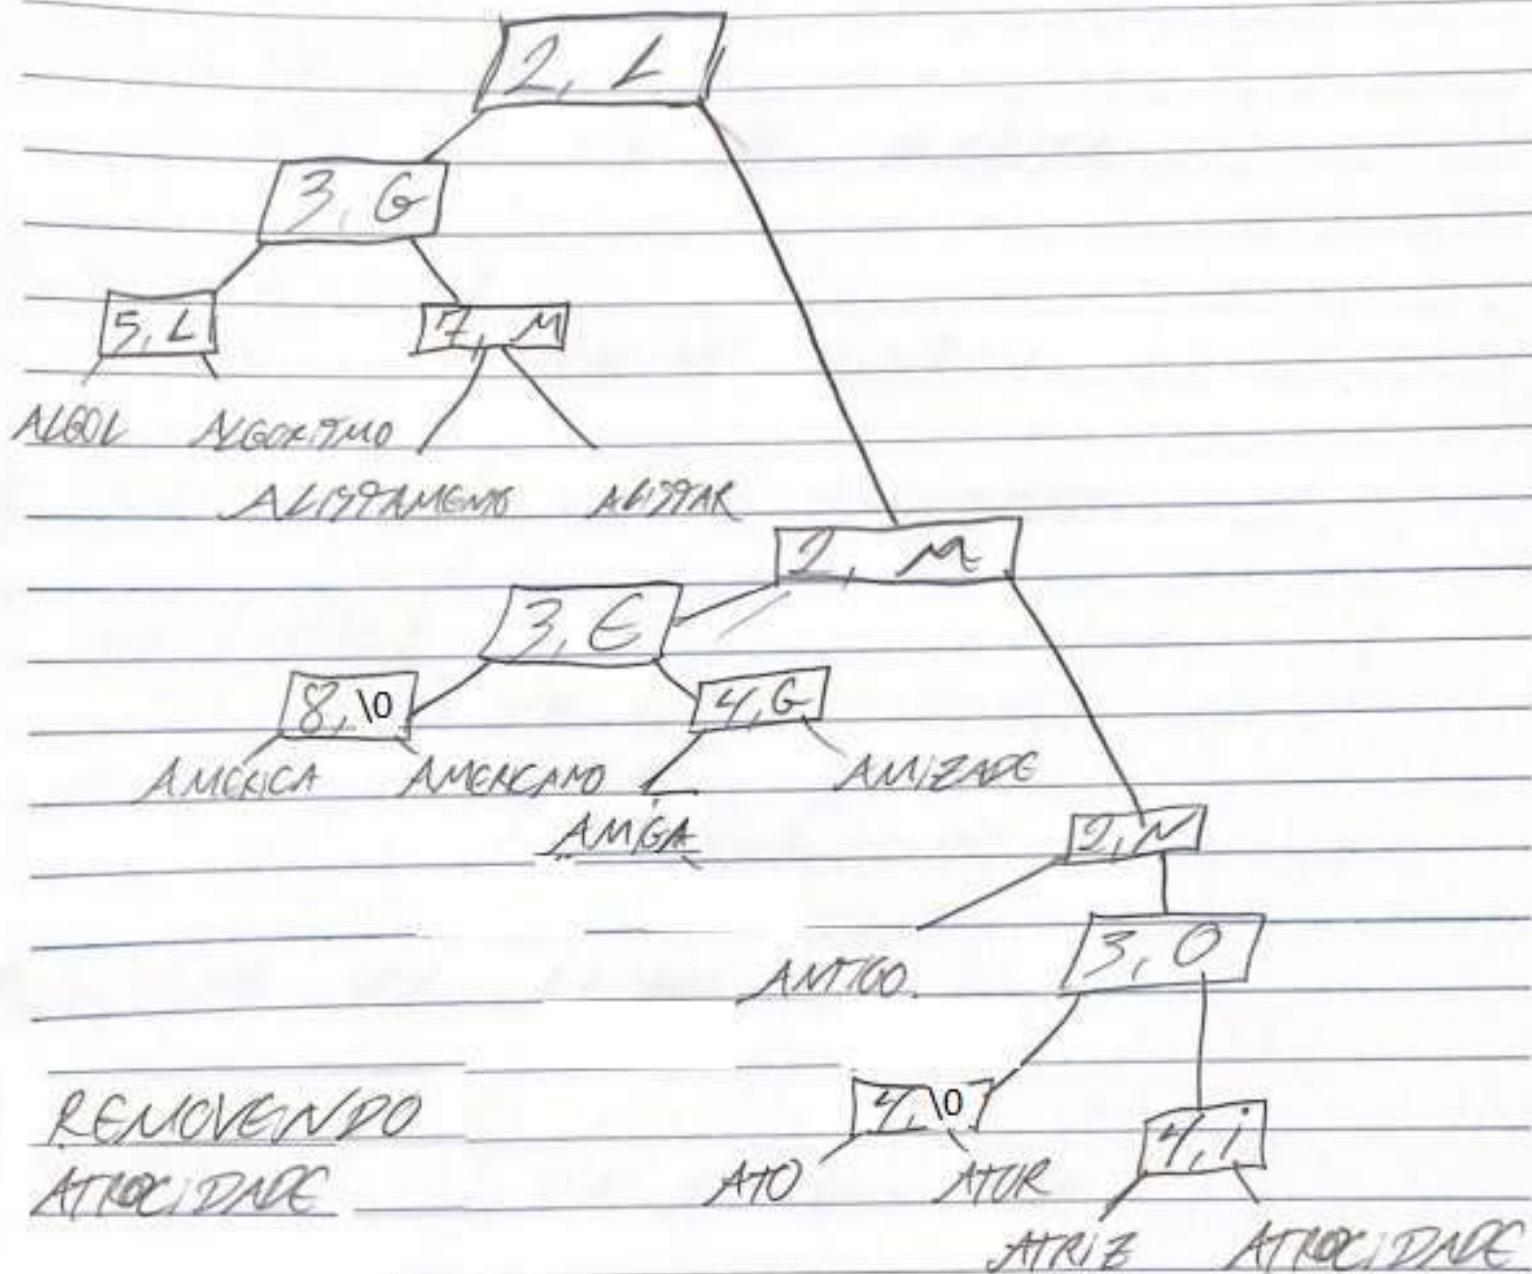 2, L
3, G
5, L
7, M
ALGOL ALGORITMO
ALISTAMENTO ALISTAR
2, M
3, E
8, \0
4, G
AMÉRICA AMERICANO AMIZADE
AMIGA
2, N
3, O
ANTIGO
4, \0
4, i
REMOVENDO
ATROCIDADE
ATO ATOR
ATRIZ ATROCIDADE